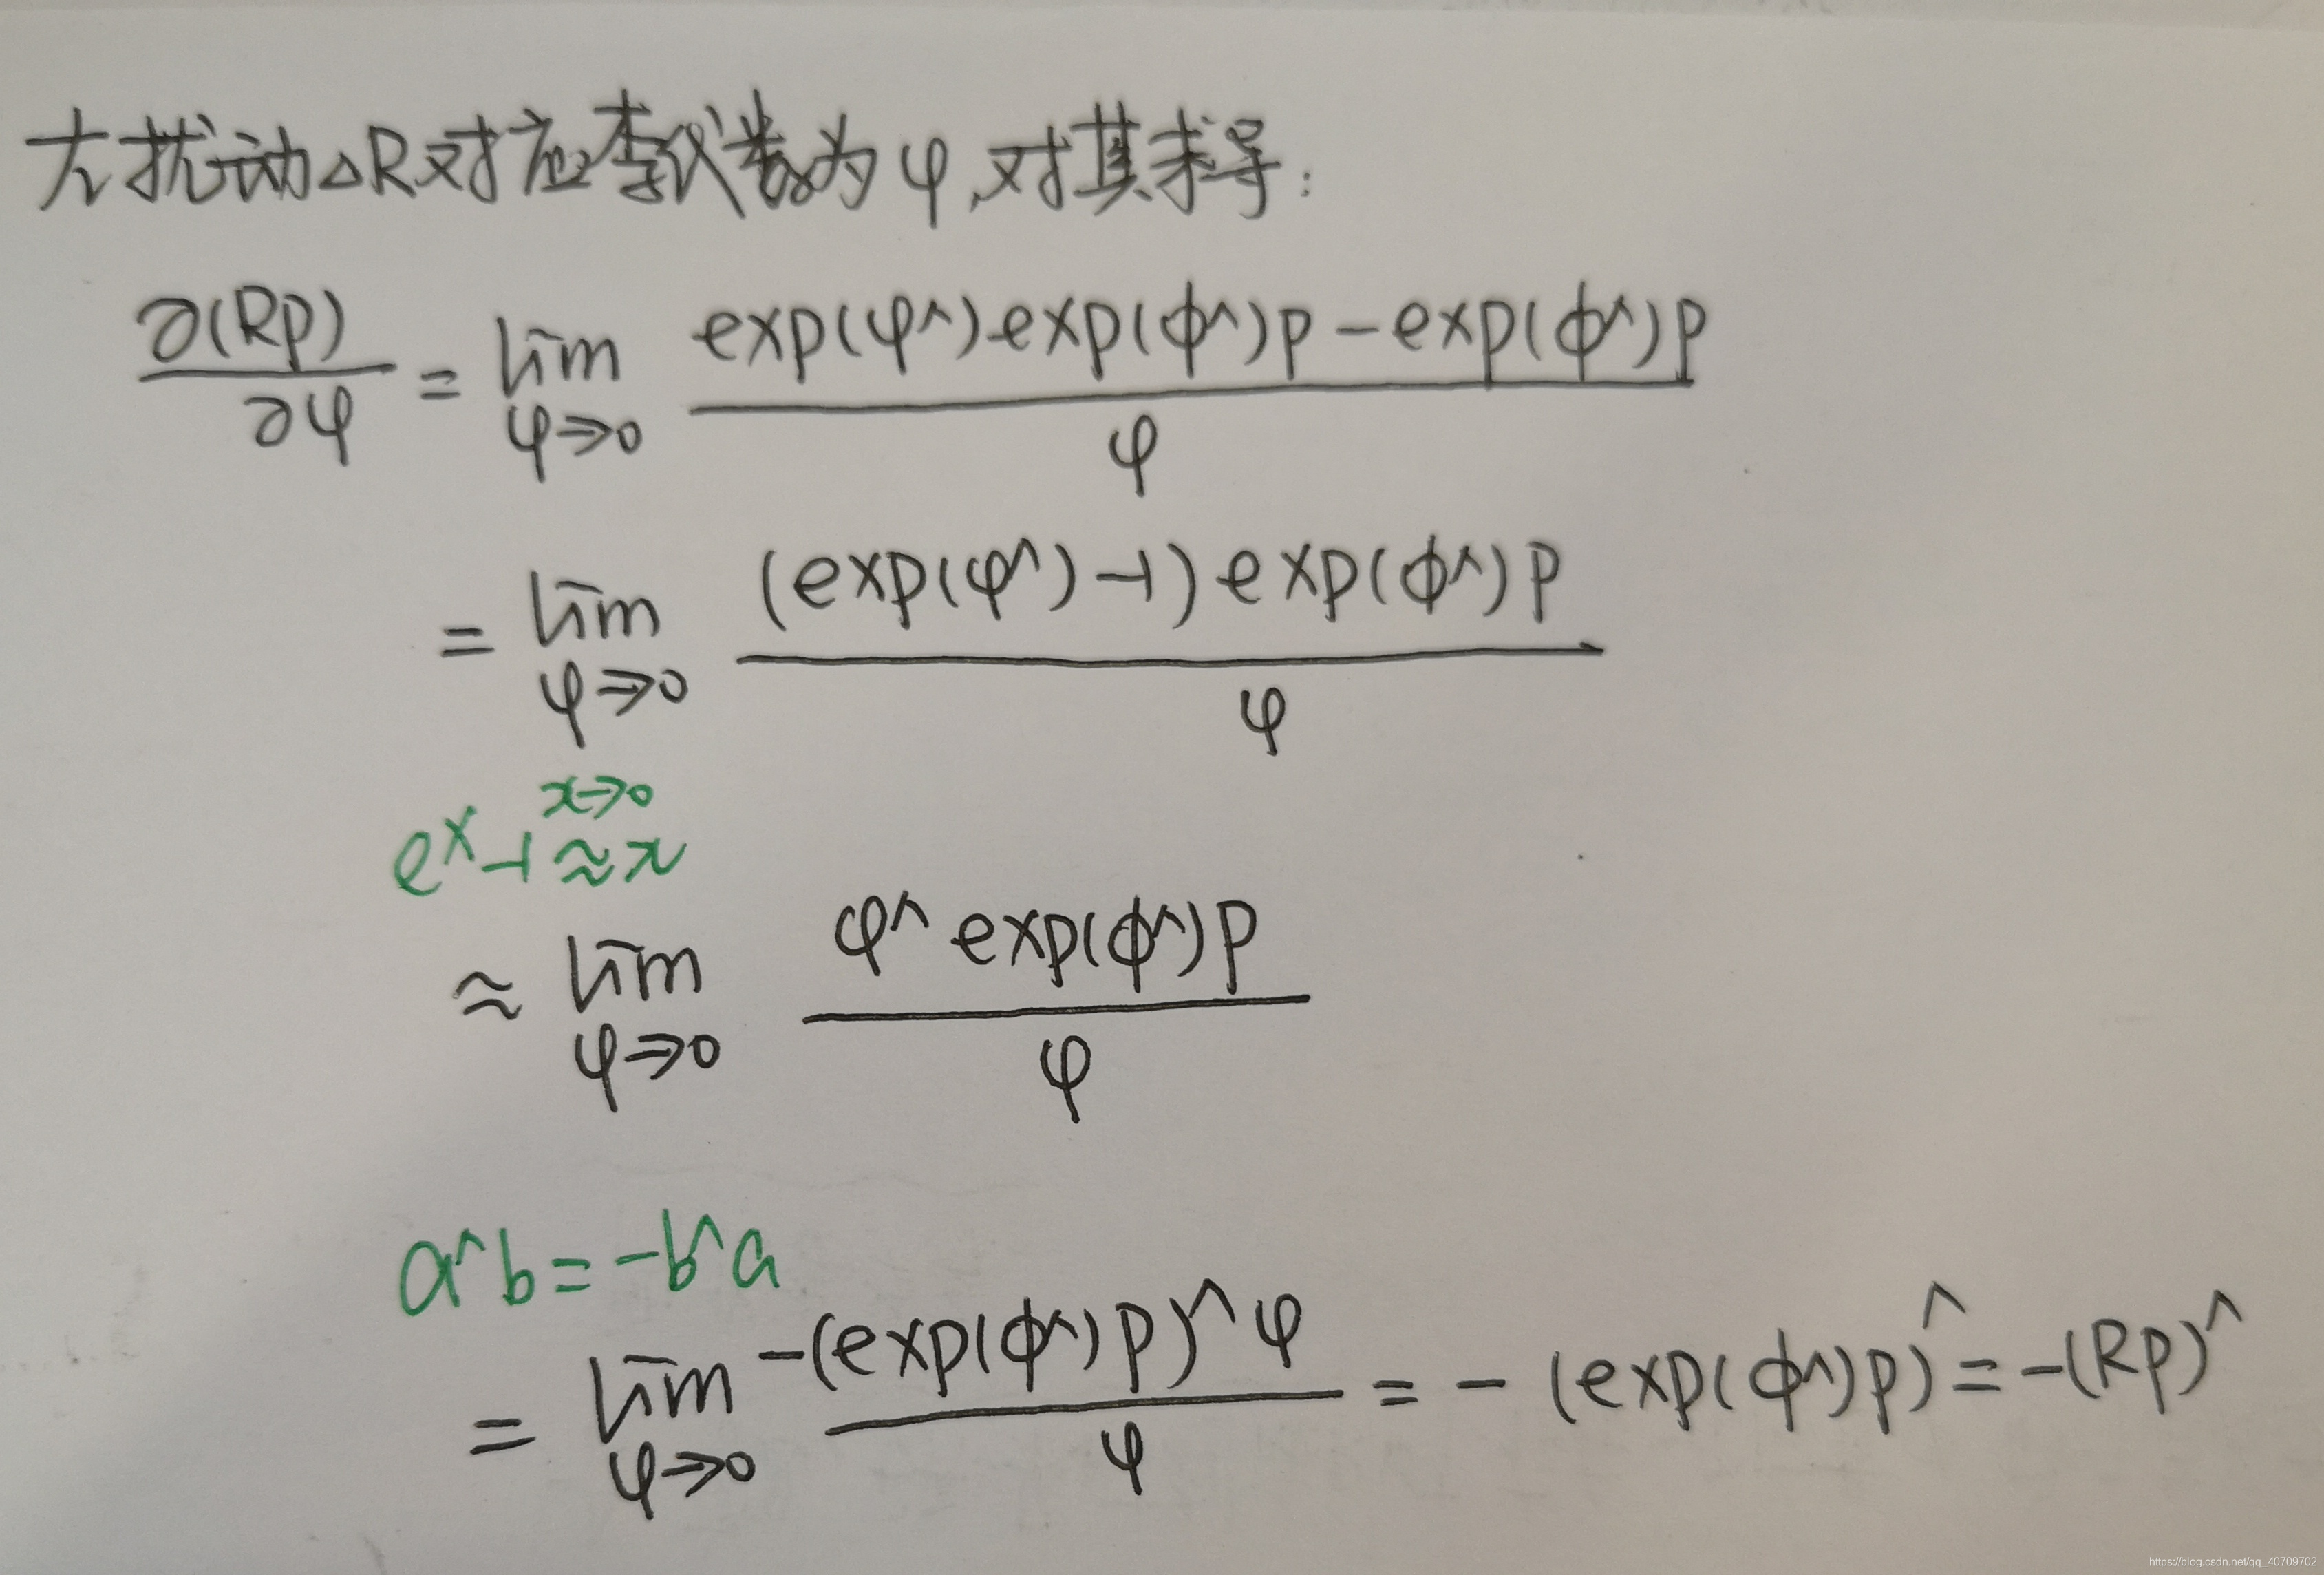 左扰动△R对应李代数为φ,对其求导:
∂(Rp)/∂φ = lim φ→0 (exp(φ^)exp(ϕ^)p - exp(ϕ^)p)/φ
= lim φ→0 ((exp(φ^)-1)exp(ϕ^)p)/φ
x→0
e^x-1≈x
≈ lim φ→0 (φ^ exp(ϕ^)p)/φ
a^b=-b^a
= lim φ→0 (-(exp(ϕ^)p)^φ)/φ = -(exp(ϕ^)p)^ = -(Rp)^
https://blog.csdn.net/qq_40709702